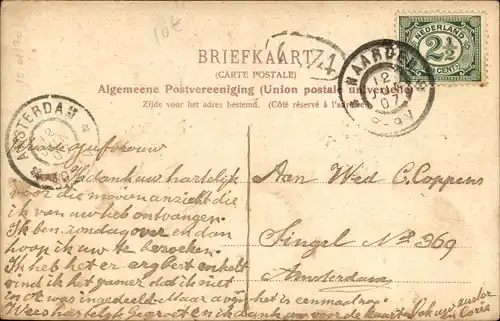 10 01/20
10€
BRIEFKAART
(CARTE POSTALE)
Algemeene Postvereeniging (Union postale universelle)
Zijde voor het adres bestemd. (Côté réservé à l'adresse)
NEDERLAND
2½
CENT
NAARDEN
12
07
AMSTERDAM
12
Waarde Juffrouw
Ik dank uw hartelijk
voor die mooi aanzicht die
ik van uw heb ontvangen.
Ik ben zondag over en dan
hoop ik uw te bezoeken.
Ik heb het er erg best enkelt
vind ik het jammer dat ik niet
in was ingedeelt Maar het is eenmaal zoo
Wees hartelijk Gegroet en ik dank uw voor de kaart Ook uw zuster
Corrie
Aan Wed C. Coppens
Singel No 369
Amsterdam